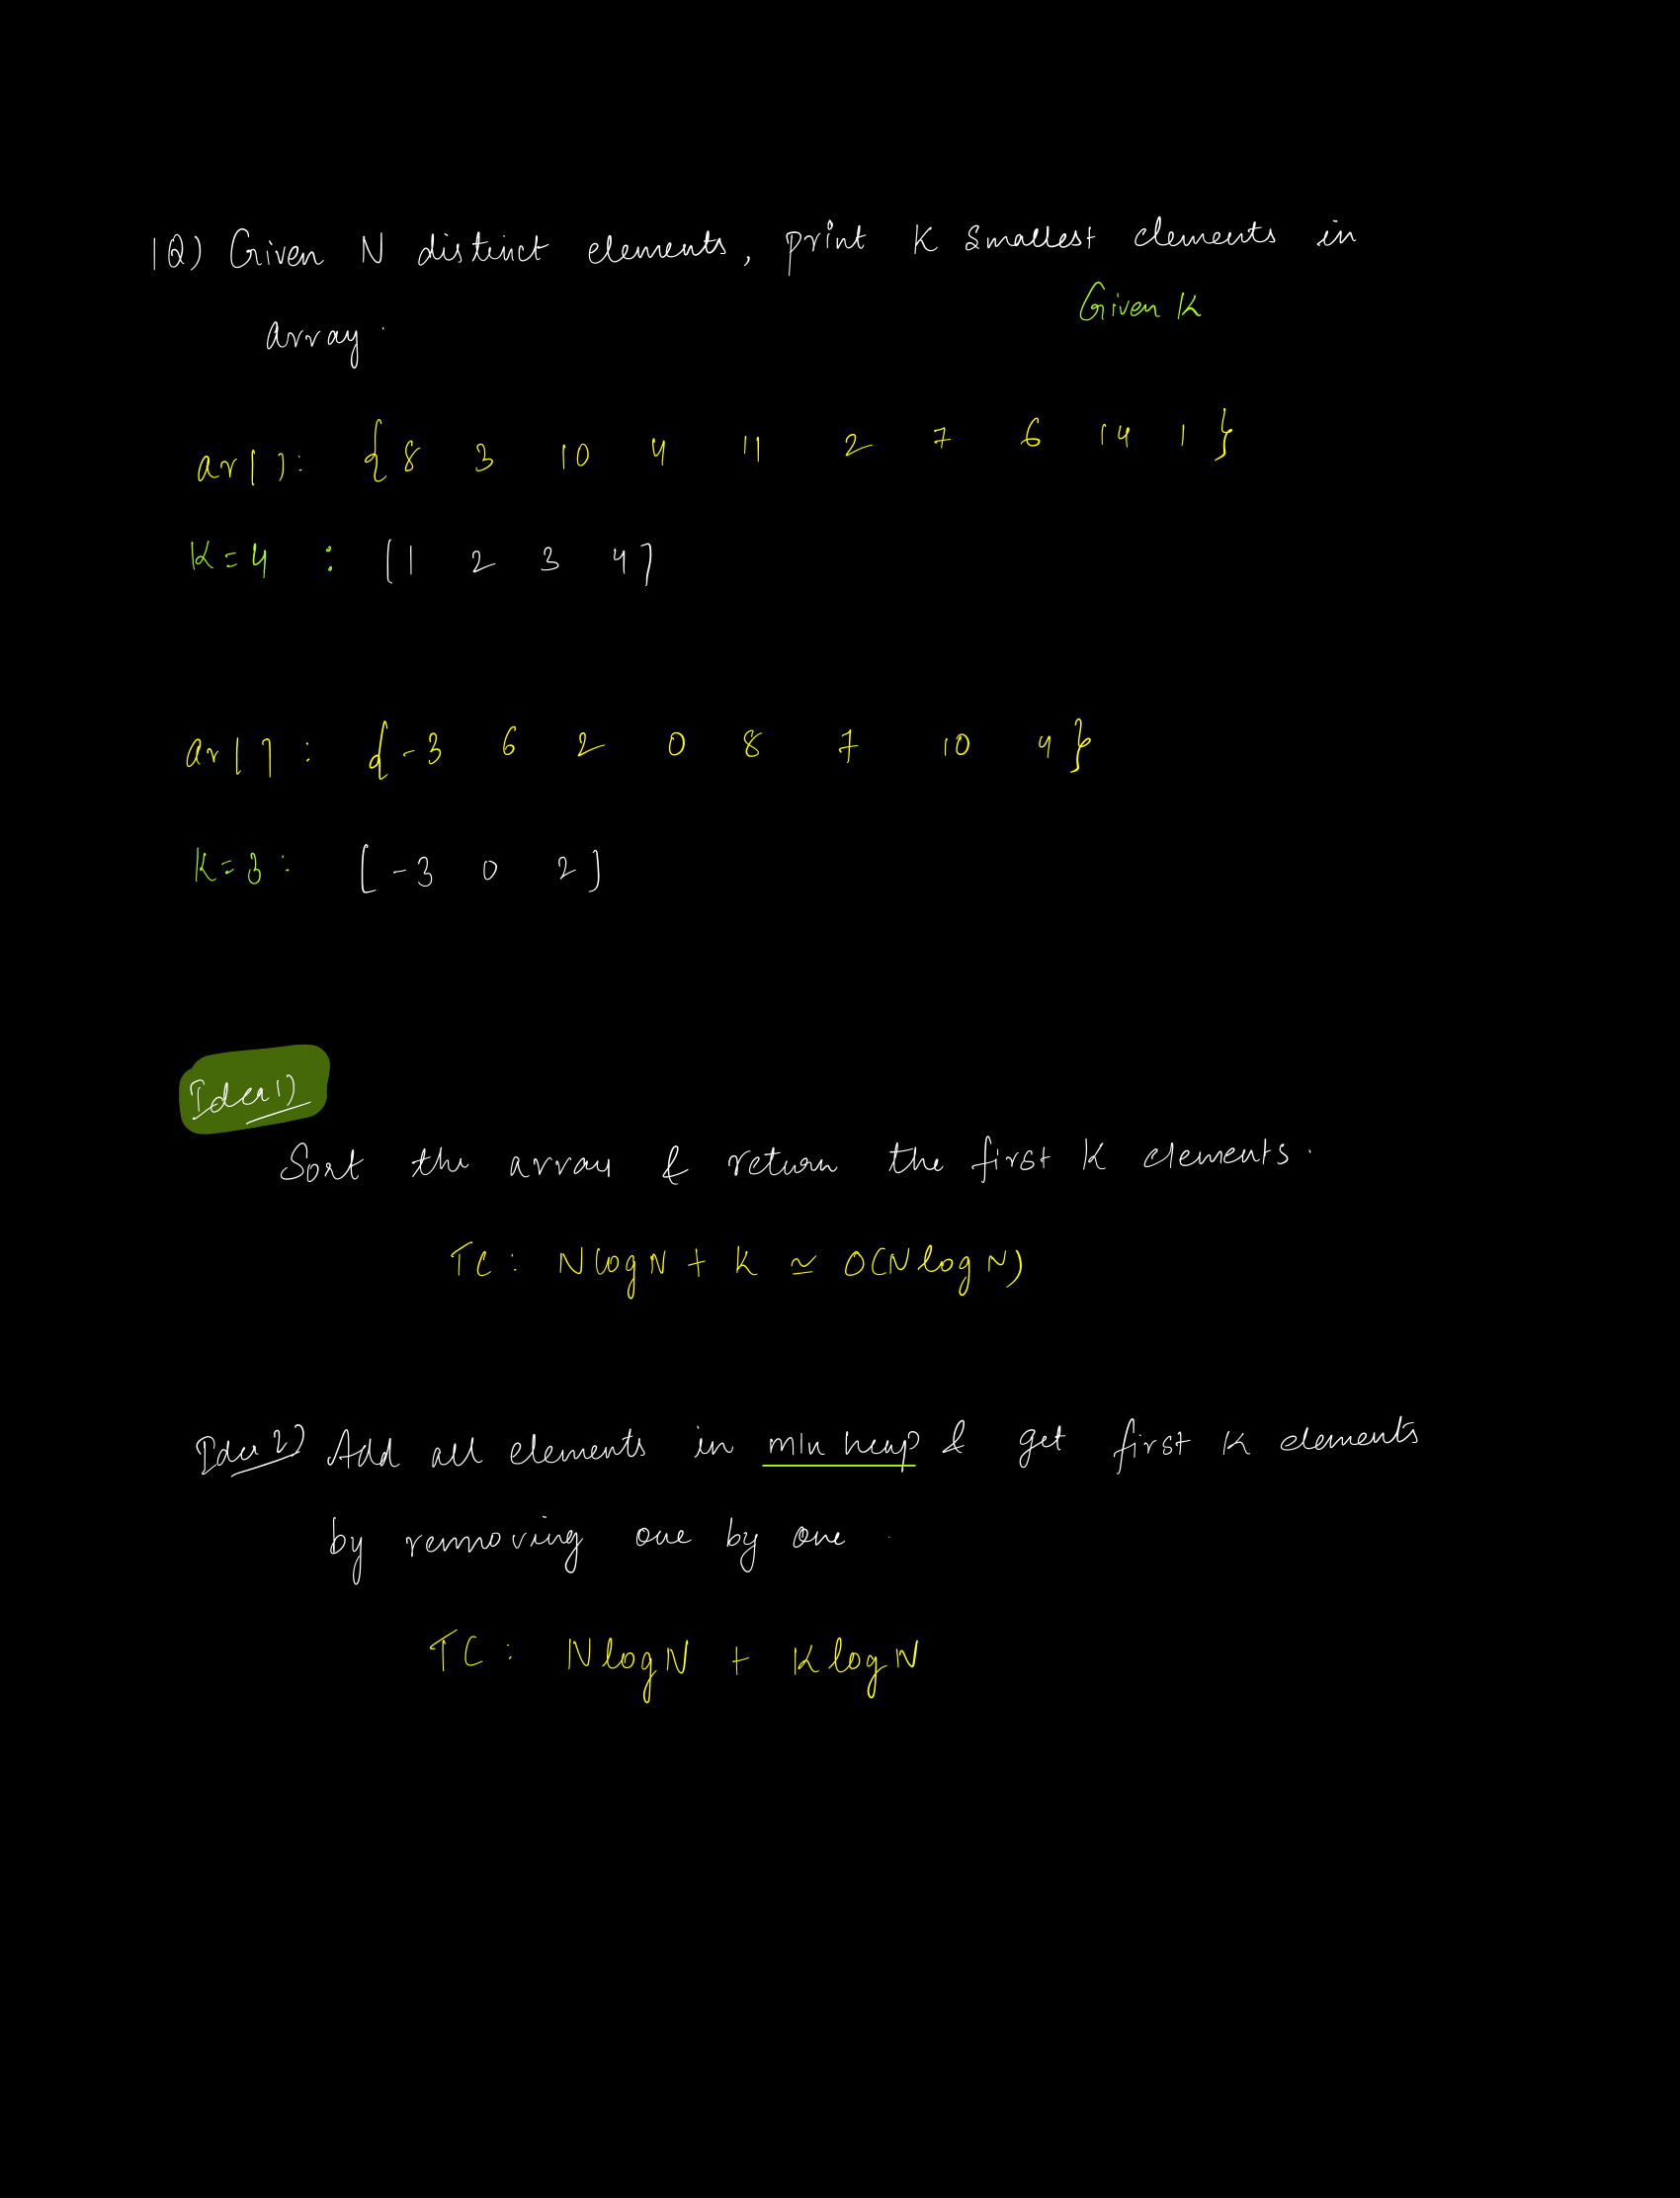 1Q) Given N distinct elements, print K smallest elements in
Given K
array.
ar[]: {8 3 10 4 11 2 7 6 14 1}
K=4 : [1 2 3 4]
ar[]: {-3 6 2 0 8 7 10 4}
K=3: [-3 0 2]
Idea1)
Sort the array & return the first K elements.
TC: NlogN + K ≃ O(NlogN)
Idea 2) Add all elements in min heap & get first K elements
by removing one by one.
TC: NlogN + KlogN